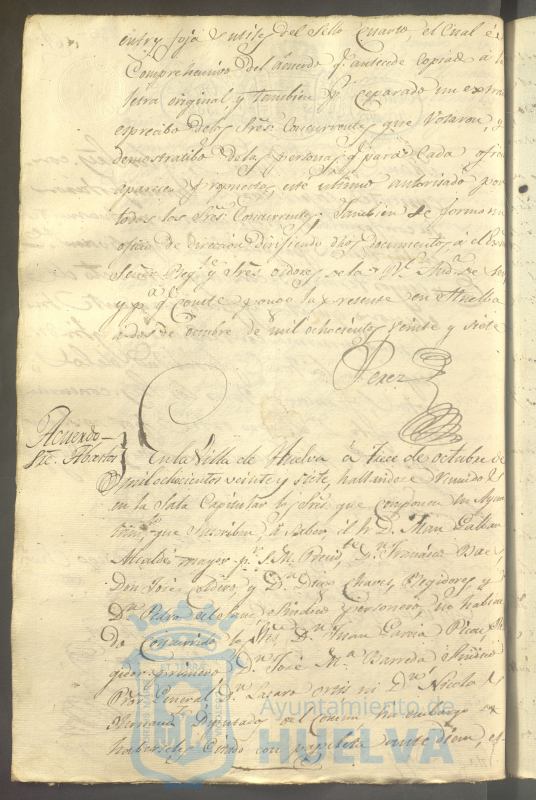 entry foja y util del Sello Cuarto, el cual es
Comprehensivo del acuerdo q.e antecede copiado a la
letra original y tambien por separado un extra
demostratibo de las personas q.e para cada oficio
aparecen Propuestas, este ultimo autorisado por
todos los S.res Concurrentes. Tambien se forma un
oficio de direccion dirijiendo dhos documentos á el Exmo
Señor Reg.te y S.res oidores de la R.l Aud.a de
y p.a q.e conste pongo la presente en Huelba
a dos de octubre de mil ochocientos veinte y siete
Perez
Acuerdo
sre. Abastos
En la Villa de Huelva á trece de octubre de
mil ochocientos veinte y siete, hallandose reunidos
en la Sala Capitular los S.res que componen su Ayun
tam.to que suscriben, á saber, el S.r D. Juan
Alcalde mayor p.r S. M. Presid.te D.n Francisco
Don José Coldero, y D.n Diego Chaves, Regidores, y
D.n Pedro del Sindico Personero, no habien
do Concurrido los S.res D.n Juan Garcia Re
gidor primero D.n José M.a Barreda Sindico
Pror General D.n Lazaro ortis ni D.n Nicolas
Diputados del Comun sin embargo de
haberseles Citado con papeleta ante diem, es
Ayuntamiento de
HUELVA